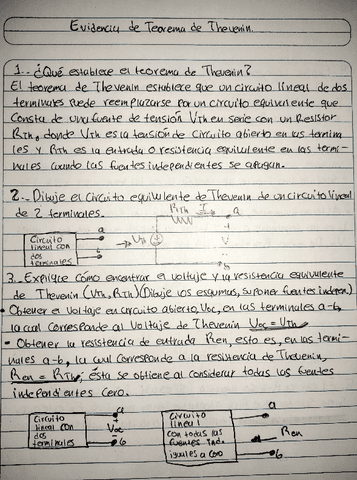 Evidencia de Teorema de Thevenin.
1.- ¿Qué establece el teorema de Thevenin?
El teorema de Thevenin establece que un circuito lineal de dos
terminales puede reemplazarse por un circuito equivalente que
consta de una fuente de tensión VTh en serie con un Resistor
RTh, donde VTh es la tensión de circuito abierto en las termina
les y RTh es la entrada o resistencia equivalente en las termi-
nales cuando las fuentes independientes se apagan.
2.- Dibuje el circuito equivalente de Thevenin de un circuito lineal
de 2 terminales.
RTh I a
Circuito lineal con dos terminales a b
VTh + V - b
3.- Explique cómo encontrar el voltaje y la resistencia equivalente
de Thevenin (VTh, RTh) (Dibuje los esquemas, suponer fuentes indepen.)
• Obtener el Voltaje en circuito abierto, Voc, en las terminales a-b,
la cual corresponde al Voltaje de Thevenin Voc = VTh
• Obtener la resistencia de entrada Ren, esto es, en las termi-
nales a-b, la cual corresponde a la resistencia de Thevenin,
Ren = RTh; ésta se obtiene al considerar todas las fuentes
independientes cero.
Circuito lineal con dos terminales a Voc b
Circuito lineal con todas las fuentes Ind. iguales a cero a Ren b